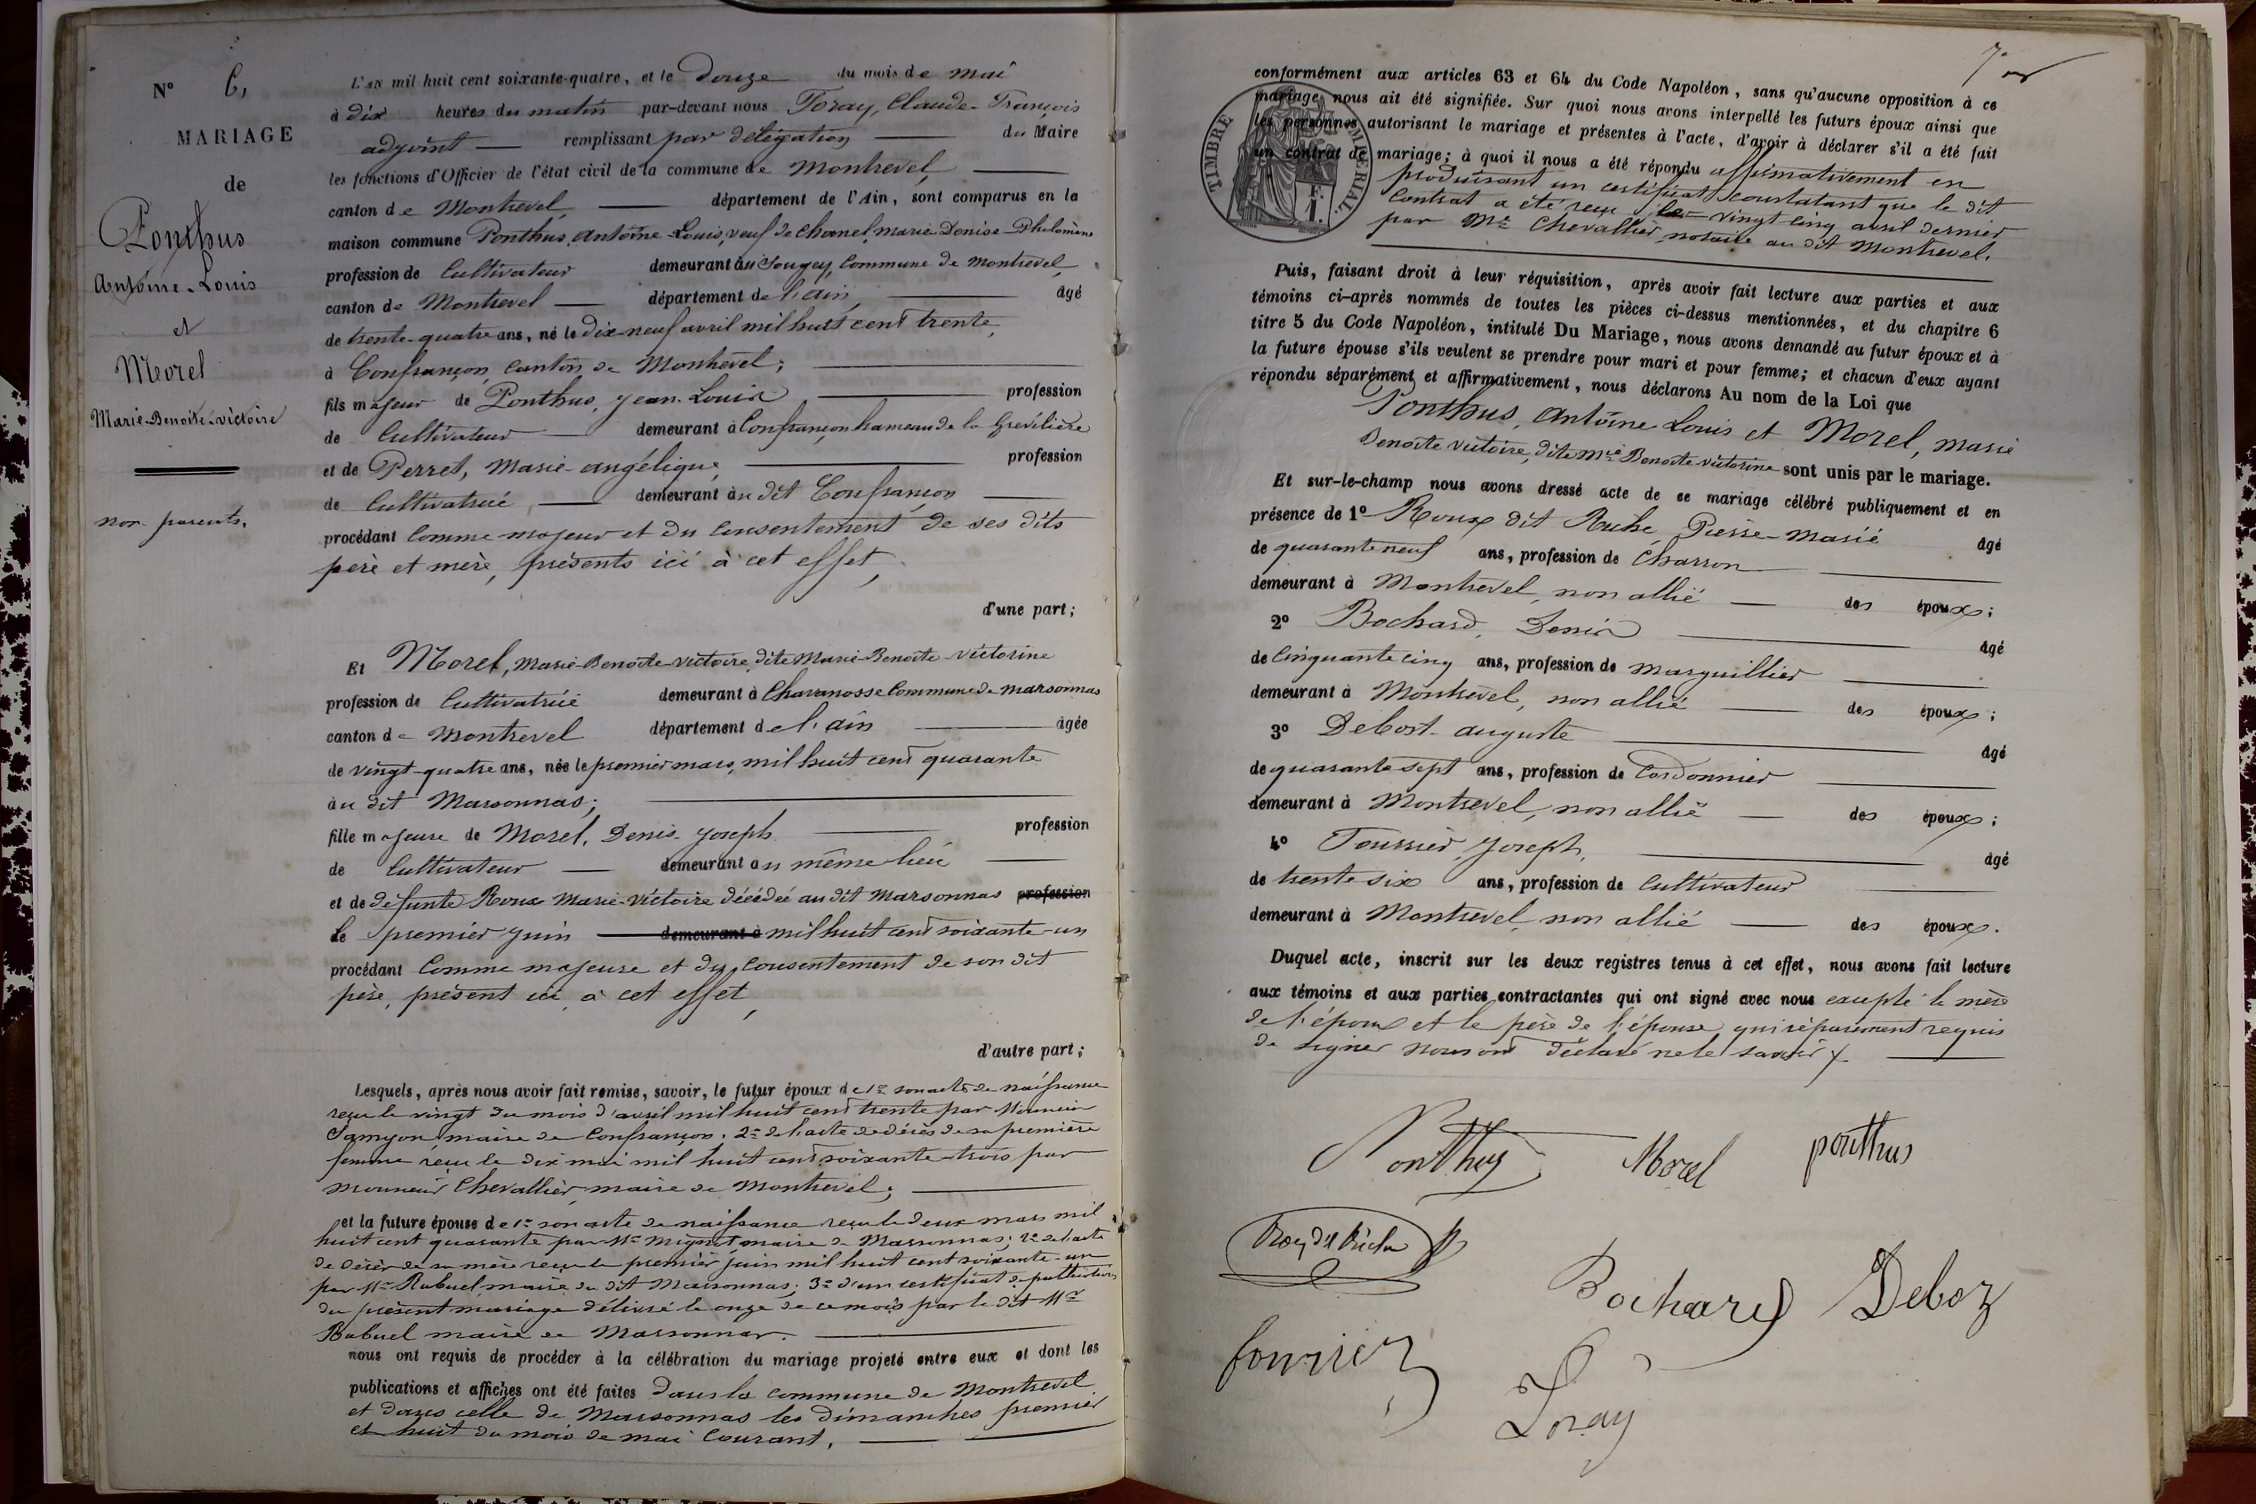 N° 6,
MARIAGE
de
Ponthus
Antoine-Louis
et
Morel
Marie-Benoite-victoire
non parents.
L'an mil huit cent soixante-quatre, et le Douze du mois de mai
à dix heures du matin par-devant nous Foray, Claude-François
adjoint remplissant par délégation du Maire
les fonctions d'Officier de l'état civil de la commune de Montrevel,
canton de Montrevel, département de l'Ain, sont comparus en la
maison commune Ponthus, Antoine-Louis, veuf de Chanel, marie Denise-Philomène
profession de Cultivateur demeurant au Sougey, Commune de Montrevel,
canton de Montrevel département de l'ain, âgé
de trente-quatre ans, né le Dix-neuf avril mil huit cent trente,
à Confrançon, Canton de Montrevel;
fils majeur de Ponthus, Jean-Louis profession
de Cultivateur demeurant à Confrançon hameau de la Grévilière
et de Perret, Marie-angélique, profession
de Cultivatrice, demeurant au dit Confrançon
procédant Comme majeur et du Consentement de ses dits
père et mère, présents ici à cet effet,
d'une part;
Et Morel, Marie-Benoite-victoire, dite Marie-Benoite-victorine
profession de Cultivatrice demeurant à Chavanosse Commune de Marsonnas
canton de Montrevel département de l'ain âgée
de vingt-quatre ans, née le premier mars, mil huit cent quarante
au dit Marsonnas;
fille majeure de Morel, Denis Joseph profession
de Cultivateur demeurant au même lieu
et de défunte Roux Marie-Victoire décédée au dit Marsonnas profession
le premier Juin demeurant à mil huit cent soixante-un
procédant Comme majeure et du Consentement de son dit
père, présent ici à cet effet,
d'autre part;
Lesquels, après nous avoir fait remise, savoir, le futur époux de 1° son acte de naissance
reçu le vingt du mois d'avril mil huit cent trente par Monsieur
maire de Confrançon; 2° de l'acte de décès de sa première
femme reçu le dix mai mil huit cent soixante-trois par
Monsieur Chevallier, maire de Montrevel;
et la future épouse de 1° son acte de naissance reçu le deux mars mil
huit cent quarante par Mr Mignot, maire de Marsonnas; 2° de l'acte
de décès de sa mère reçu le premier juin mil huit cent soixante-un
par Mr Bubuel maire du dit Marsonnas; 3° d'un certificat de publications
du présent mariage délivré le onze de ce mois par le dit Mr
Bubuel maire de Marsonnas.
nous ont requis de procéder à la célébration du mariage projeté entre eux et dont les
publications et affiches ont été faites dans la commune de Montrevel
et dans celle de Marsonnas les dimanches premier
et huit du mois de mai Courant.
conformément aux articles 63 et 64 du Code Napoléon, sans qu'aucune opposition à ce
mariage nous ait été signifiée. Sur quoi nous avons interpellé les futurs époux ainsi que
les personnes autorisant le mariage et présentes à l'acte, d'avoir à déclarer s'il a été fait
un contrat de mariage; à quoi il nous a été répondu affirmativement en
produisant un certificat constatant que le dit
Contrat a été reçu le vingt cinq avril dernier
par Mr Chevallier, notaire au dit Montrevel.
TIMBRE IMPÉRIAL.
Puis, faisant droit à leur réquisition, après avoir fait lecture aux parties et aux
témoins ci-après nommés de toutes les pièces ci-dessus mentionnées, et du chapitre 6
titre 5 du Code Napoléon, intitulé Du Mariage, nous avons demandé au futur époux et à
la future épouse s'ils veulent se prendre pour mari et pour femme; et chacun d'eux ayant
répondu séparément et affirmativement, nous déclarons Au nom de la Loi que
Ponthus, Antoine Louis et Morel, marie
Benoite victoire, dite Mie Benoite victorine sont unis par le mariage.
Et sur-le-champ nous avons dressé acte de ce mariage célébré publiquement et en
présence de 1° Roux dit Ruche, Pierre-Marie âgé
de quarante neuf ans, profession de Charron
demeurant à Montrevel, non allié des époux;
2° Bochard, Denis âgé
de Cinquante cinq ans, profession de marguillier
demeurant à Montrevel, non allié des époux;
3° Debost auguste âgé
de quarante-sept ans, profession de Cordonnier
demeurant à Montrevel, non allié des époux;
4° Fournier, Joseph, âgé
de trente-six ans, profession de Cultivateur
demeurant à Montrevel, non allié des époux.
Duquel acte, inscrit sur les deux registres tenus à cet effet, nous avons fait lecture
aux témoins et aux parties contractantes qui ont signé avec nous excepté la mère
de l'époux et le père de l'épouse qui séparement requis
de signer nous ont déclaré ne le savoir.
Ponthus Morel ponthus
Bochard Deboz
Foray